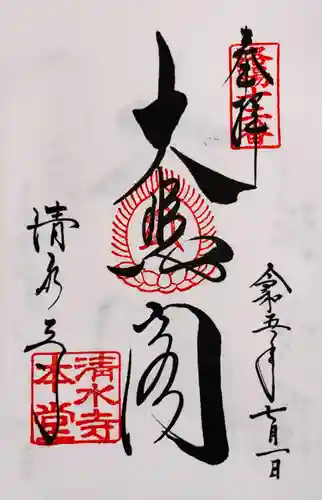 奉拝
令和五年七月一日
大悲閣
清水寺
清水寺本堂